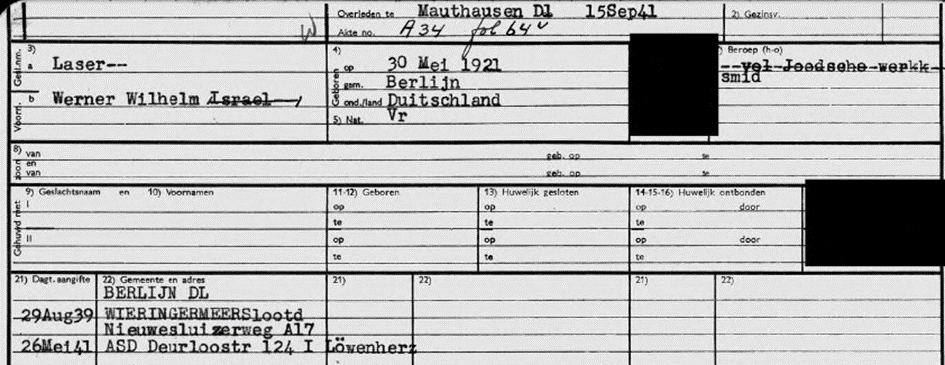 Overleden te Mauthausen Dl 15Sep41 2) Gezinsv.
Akte no. A 34 fol 64v
3) 4) Beroep (h-o)
Gesl.nm. a Laser-- Geboren op 30 Mei 1921 --vol Joodsche werkk
gem. Berlijn smid
Voorn. b Werner Wilhelm Israel ond./land Duitschland
5) Nat. Vr
8) van geb. op te
zoon en
van geb. op te
9) Geslachtsnaam en 10) Voornamen 11-12) Geboren 13) Huwelijk gesloten 14-15-16) Huwelijk ontbonden
Gehuwd met I op op op door
te te te
II op op op door
te te te
21) Dagt. aangifte 22) Gemeente en adres 21) 22) 21) 22)
BERLIJN DL
29Aug39 WIERINGERMEERSlootd
Nieuwesluizerweg A17
26Mei41 ASD Deurloostr 124 I Löwenherz